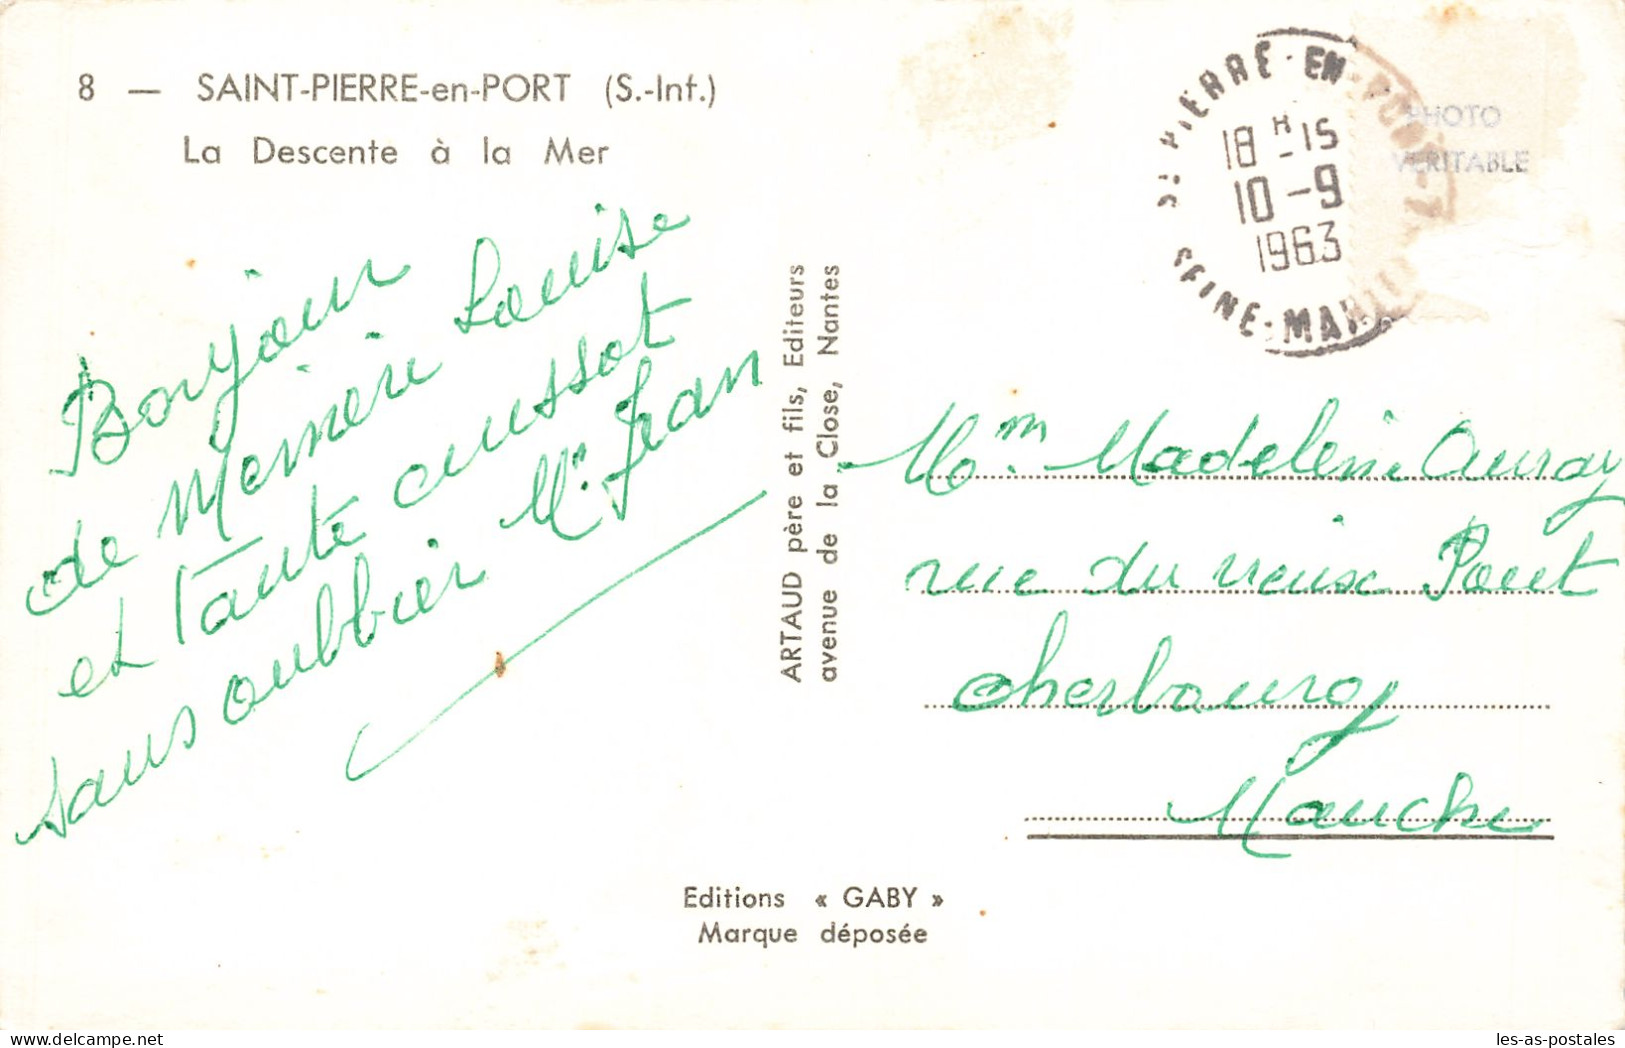 8 — SAINT-PIERRE-en-PORT (S.-Inf.)
La Descente à la Mer
Bonjour
de Mémère Louise
et Tante aussot
sans oubbier Mr Jean
ARTAUD père et fils, Editeurs
avenue de la Close, Nantes
ST PIERRE-EN-PORT
18 H 15
10 -9
1963
SEINE-MARITIME
PHOTO
VERITABLE
Mme Madeleine Auray
rue du vieux Pont
Cherbourg
Manche
Editions « GABY »
Marque déposée
les-as-postales